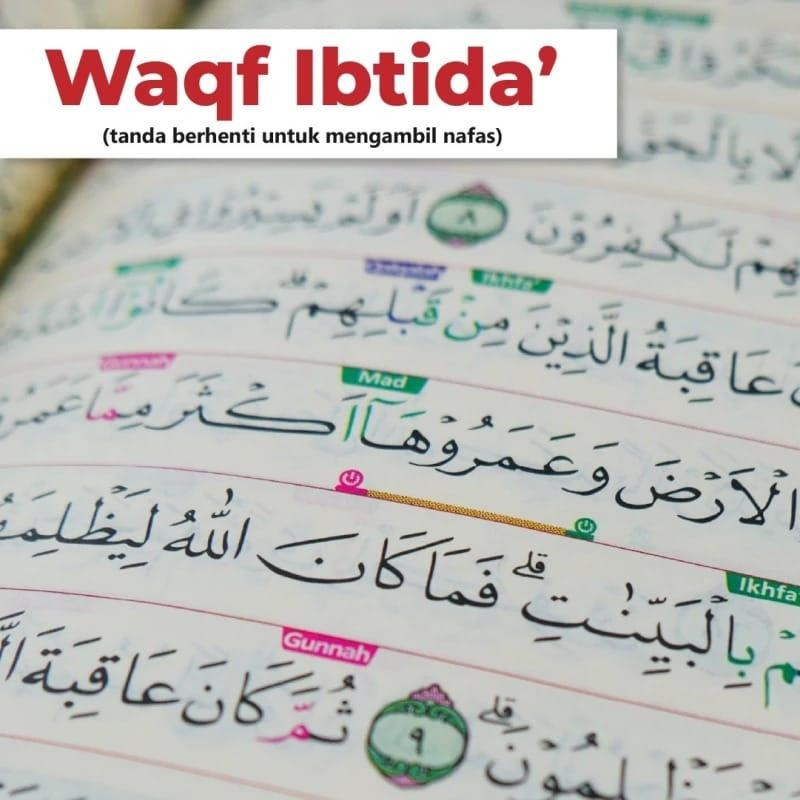 Waqf Ibtida’
(tanda berhenti untuk mengambil nafas)
لَكٰفِرُوْنَ ٨ اَوَلَمْ يَسِيْرُوْا فِى
Ikhfa'
عَاقِبَةُ الَّذِيْنَ مِنْ قَبْلِهِمْۗ كَانُوْٓا
Mad Gunnah
الْاَرْضَ وَعَمَرُوْهَآ اَكْثَرَ مِمَّا
Ikhfa'
بِالْبَيِّنٰتِۗ فَمَا كَانَ اللّٰهُ
Gunnah
٩ ثُمَّ كَانَ عَاقِبَةَ